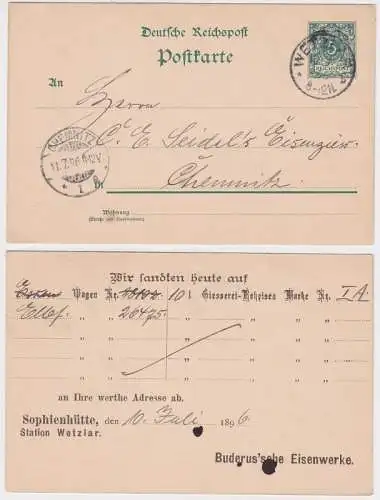 Deutsche Reichspost
Postkarte
5
REICHSPOST
WETZ
8-12N.
An
Herrn
C. E. Seidel's Eisengier
Chemnitz
CHEMNITZ
11.7.96
1
in
Wohnung
(Straße und Hausnummer)
Wir sandten heute auf
Essen Wagen Nr. 10 t Giesserei-Roheisen Marke Nr. I A.
Elbf. " " 26475 " " " " "
an Ihre werthe Adresse ab.
Sophienhütte, den 10. Juli 1896
Station Wetzlar.
Buderus'sche Eisenwerke.